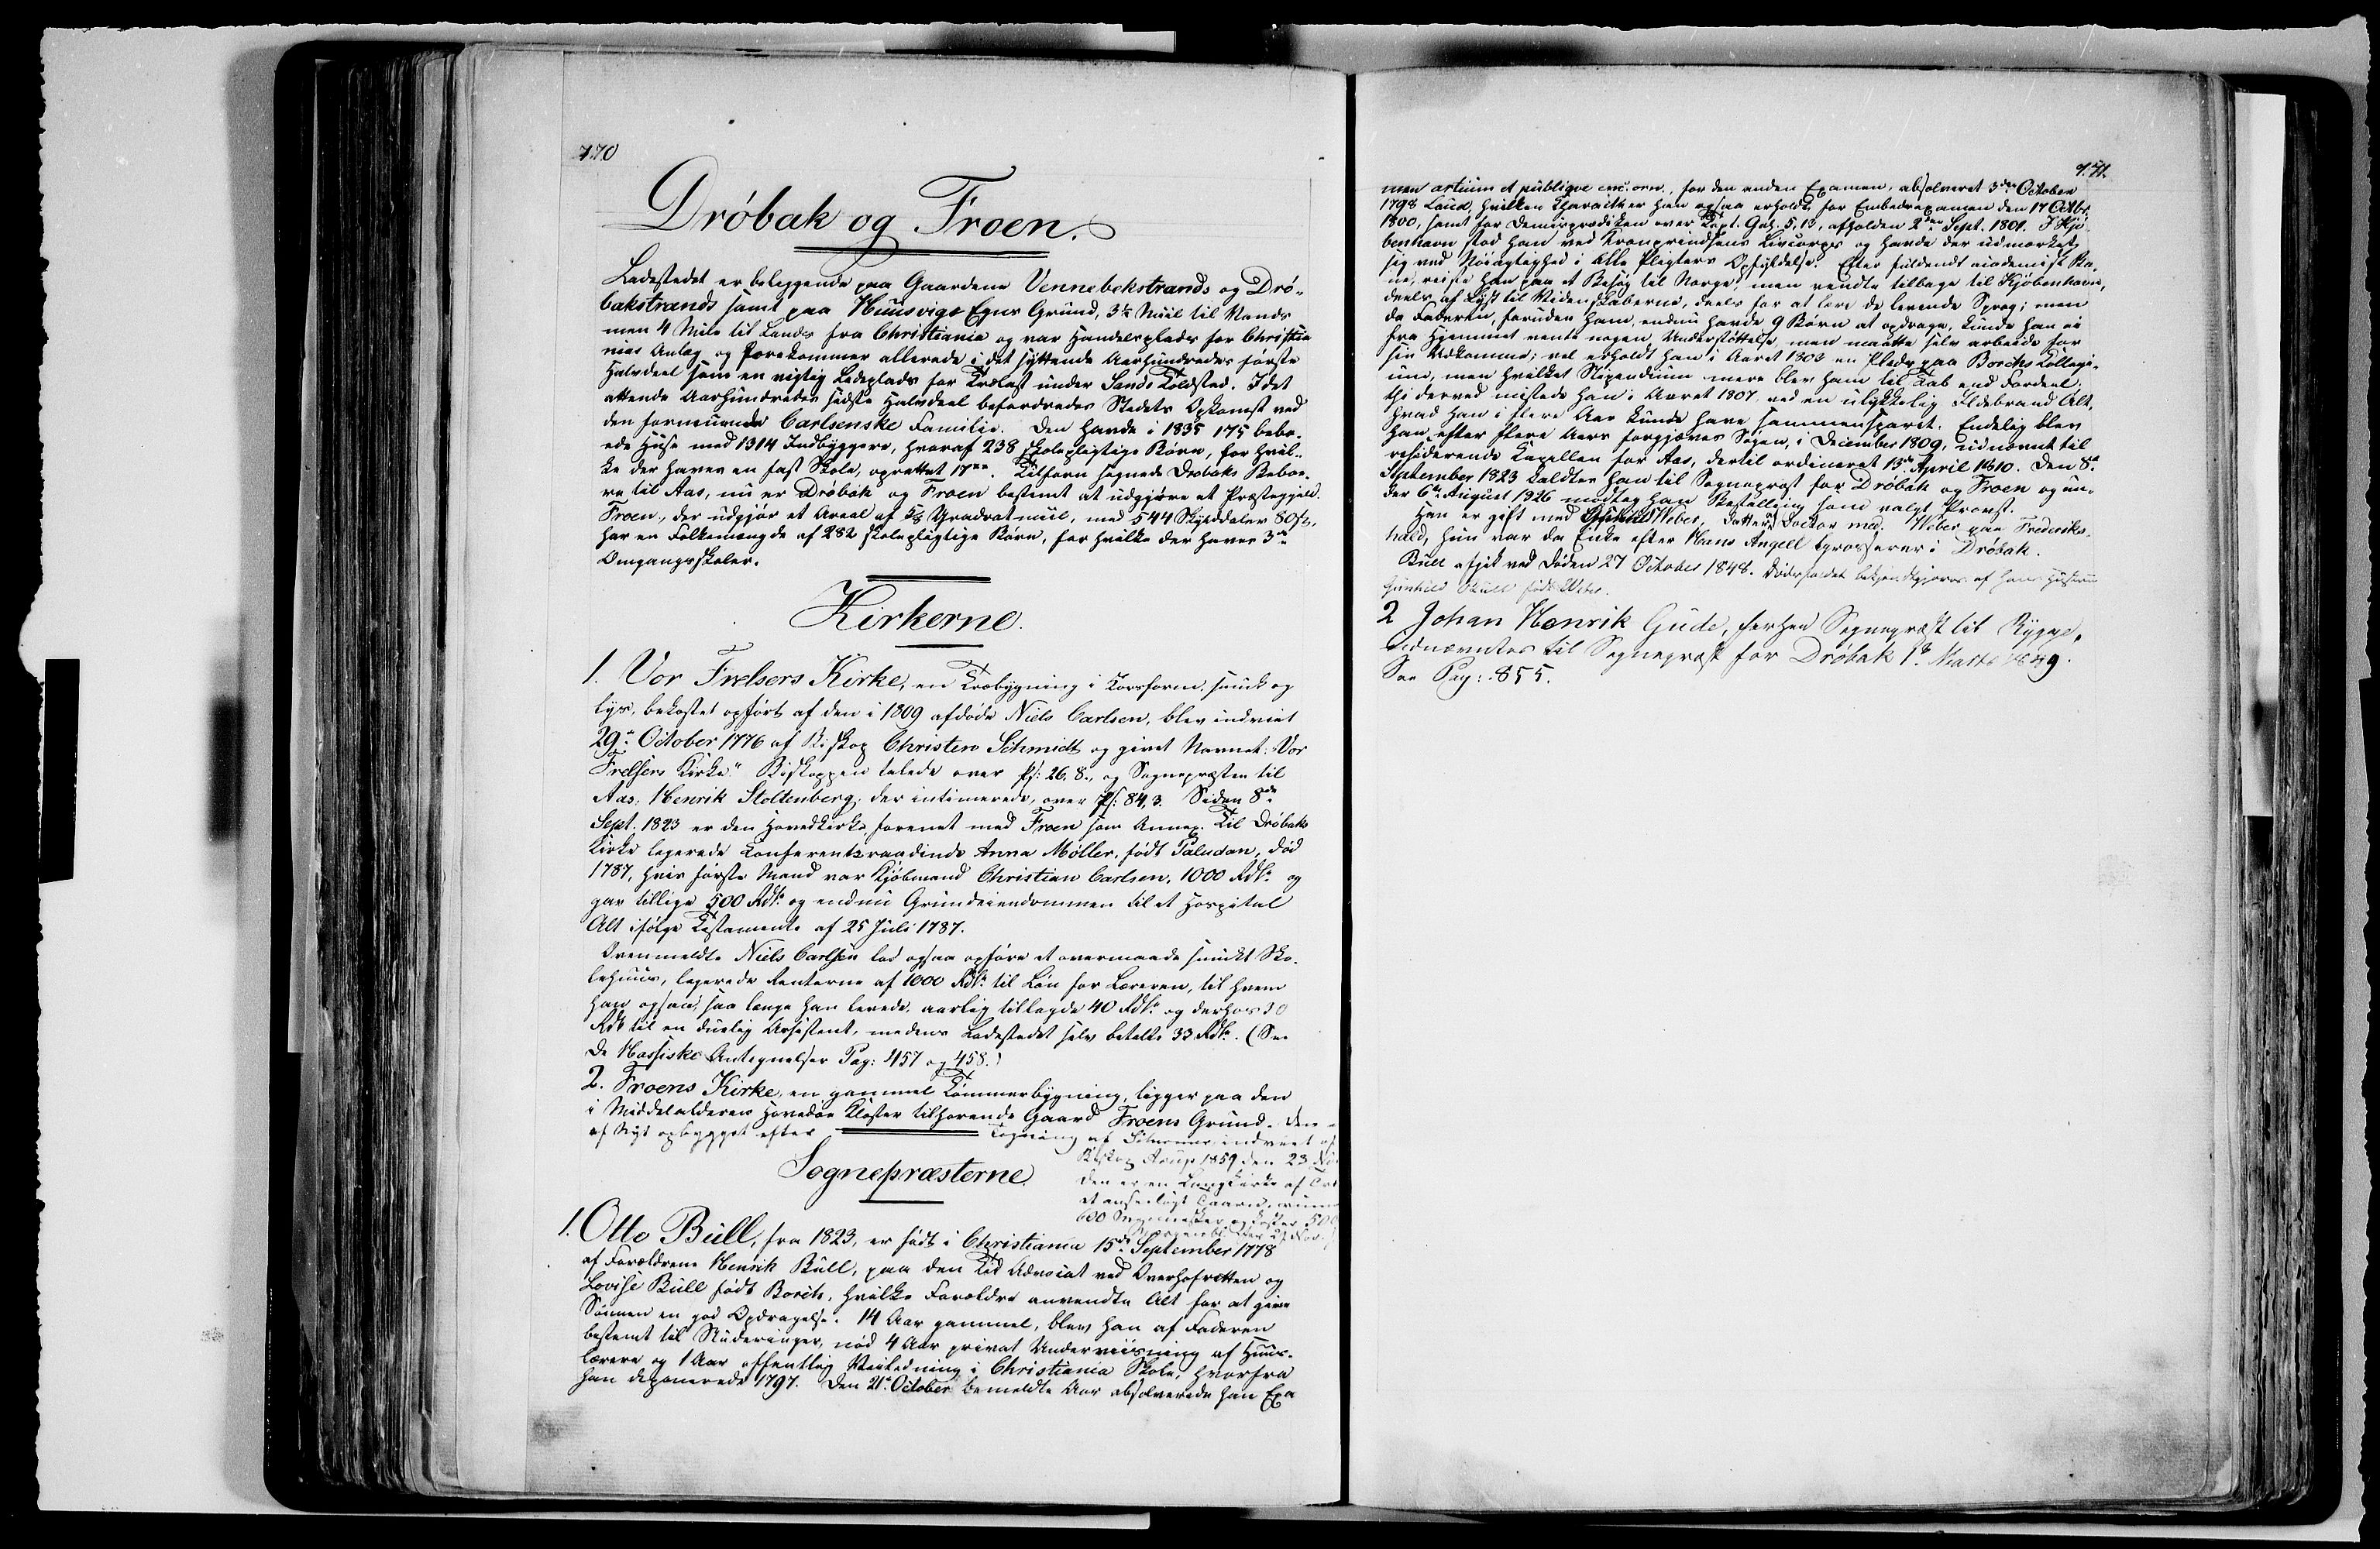 770
Dröbak og Froen.
Ladestedet er beliggende paa Gaardene Vennebekstrands og Drö-
bakstrands samt paa Huusvigs Egns Grund, 3½ Miil til Vands
men 4 Mile til Lands fra Christiania og var Handelsplads før Christia
nias Anlæg og forekommer allerede i det syttende Aarhundredes første
Halvdeel som en vigtig Ladeplads for Trælast under Sands Toldsted. I det
attende Aarhundredes sidste Halvdeel befordredes Stedets Opkomst ved
den formuende Carlsenske Familie. Den havde i 1835 175 bebo-
ede Huse med 1314 Indbyggere, hvoraf 238 skolepligtige Børn, for hvil-
ke der haves en fast Skole, oprettet 17 . Tilforn søgnede Drøbaks Beboe-
re til Aas, nu er Dröbak og Froen bestemt at udgjøre et Præstegjeld.
Froen, der udgjør et Areal af 5/8 Qvadratmiil, med 544 Skylddaler 80 ß,
har en Folkemængde af 282 skolepligtige Børn, for hvilke der haves 3de
Omgangsskoler.
Kirkerne.
1. Vor Frelsers Kirke, en Træbygning i Korsform, smuk og
lys, bekostet opført af den i 1809 afdøde Niels Carlsen, blev indviet
29de October 1776 af Biskop Christen Schmidt og givet Navnet: "Vor
Frelsers Kirke." Biskoppen talede over Ps: 26, 8., og Sognepræsten til
Aas, Henrik Stoltenberg, der intimerede, over Ps: 84, 3. Siden 8de
Sept. 1823 er den Hovedkirke, forenet med Froen som Annex. Til Dröbaks
Kirke legerede Conferentsraadinde Anna Møller, født Paludan, død
1787, hvis første Mand var Kjøbmand Christian Carlsen, 1000 Rdlr og
gav tillige 500 Rdlr og endnu Grundeiendommen til et Hospital
Alt ifølge Testamente af 25 Juli 1787.
Ovenmeldte Niels Carlsen lod ogsaa opføre et overmaade smukt Sko-
lehuus, legerede Renterne af 1000 Rdlr til Løn for Læreren, til hvem
han ogsaa, saa længe han levede, aarlig tillagde 40 Rdlr og derhos 30
Rdlr til en duelig Assistent, medens Ladestedet selv betalte 33 Rdlr. (See
de Hassiske Antegnelser Pag: 457 og 458.)
2. Froens Kirke, en gammel Tømmerbygning, ligger paa den
i Middelalderen Hovedøe Kloster tilhørende Gaard Froens Grund. Den
af Nyt opbygget efter Tegning af indviet af
Biskop Arup 1859 den 23
den er en Langkirke af
et anseeligt Taarn, rummer
600 Mennesker og koster 500
Sognepræsterne.
1. Otto Bull, fra 1823, er født i Christiania 15de September 1778
af Forældrene Henrik Bull, paa den Tid Advocat ved Overhofretten og
Lovise Bull født Borch, hvilke Forældre anvendte Alt for at give
Sønnen en god Opdragelse. 14 Aar gammel, blev han af Faderen
bestemt til Studeringer, nød 4 Aar privat Underviisning af Huus-
lærere og 1 Aar offentlig Veiledning i Christiania Skole, hvorfra
han deponerede 1797. Den 21de October bemeldte Aar absolverede han Exa
771.
men artium et publique enc: orn., for den anden Examen, absolveret 3die October
1798 Laud, hvilken Charakter han ogsaa erholdt for Embedsexamen den 17 Octbr.
1800, samt for Demisprædiken over Text. Gal. 5, 13, afholden 2den Sept. 1801. I Kjø-
benhavn stod han ved Kronprindsens Livcorps og havde der udmærket
sig ved Nøiagtighed i alle Pligters Opfyldelse. Efter fuldendt academisk Ba-
ne, reiste han paa et Besøg til Norge, men vendte tilbage til Kjøbenhavn,
deels af Lyst til Videnskaberne, deels for at lære de levende Sprog; men
da Faderen, foruden ham, endnu havde 9 Børn at opdrage, kunde han ei
fra Hjemmet vente nogen Understøttelse, men maatte selv arbeide for
sin Udkomme; vel erholdt han i Aaret 1802 en Plads paa Borchs Collegi-
um, men hvilket Stipendium mere blev ham til Tab end Fordeel;
thi derved mistede han i Aaret 1807 ved en ulykkelig Ildebrand Alt,
hvad han i flere Aar kunde have sammensparet. Endelig blev
han efter flere Aars forgjæves Søgen, i December 1809, udnævnt til
residerende Capellan for Aas, dertil ordineret 13de April 1810. Den 8de
September 1823 kaldtes han til Sognepræst for Dröbak og Froen og un-
der 6te August 1826 modtog han Bestalling som valgt Provst.
Han er gift med Gunhild Weber, Datter af Doctor med. Weber paa Frederiks-
hald, hun var da Enke efter Hans Angell Grosserer i Dröbak.
Bull afgik ved Døden 27 October 1848. Dødsfaldet bekjendtgjøres af hans Hustru
Gunhild Bull født Weber.
2 Johan Henrik Gude, forhen Sognepræst til Rygge,
udnævntes til Sognepræst for Dröbak 1ste Marts 1849.
See Pag: 855.